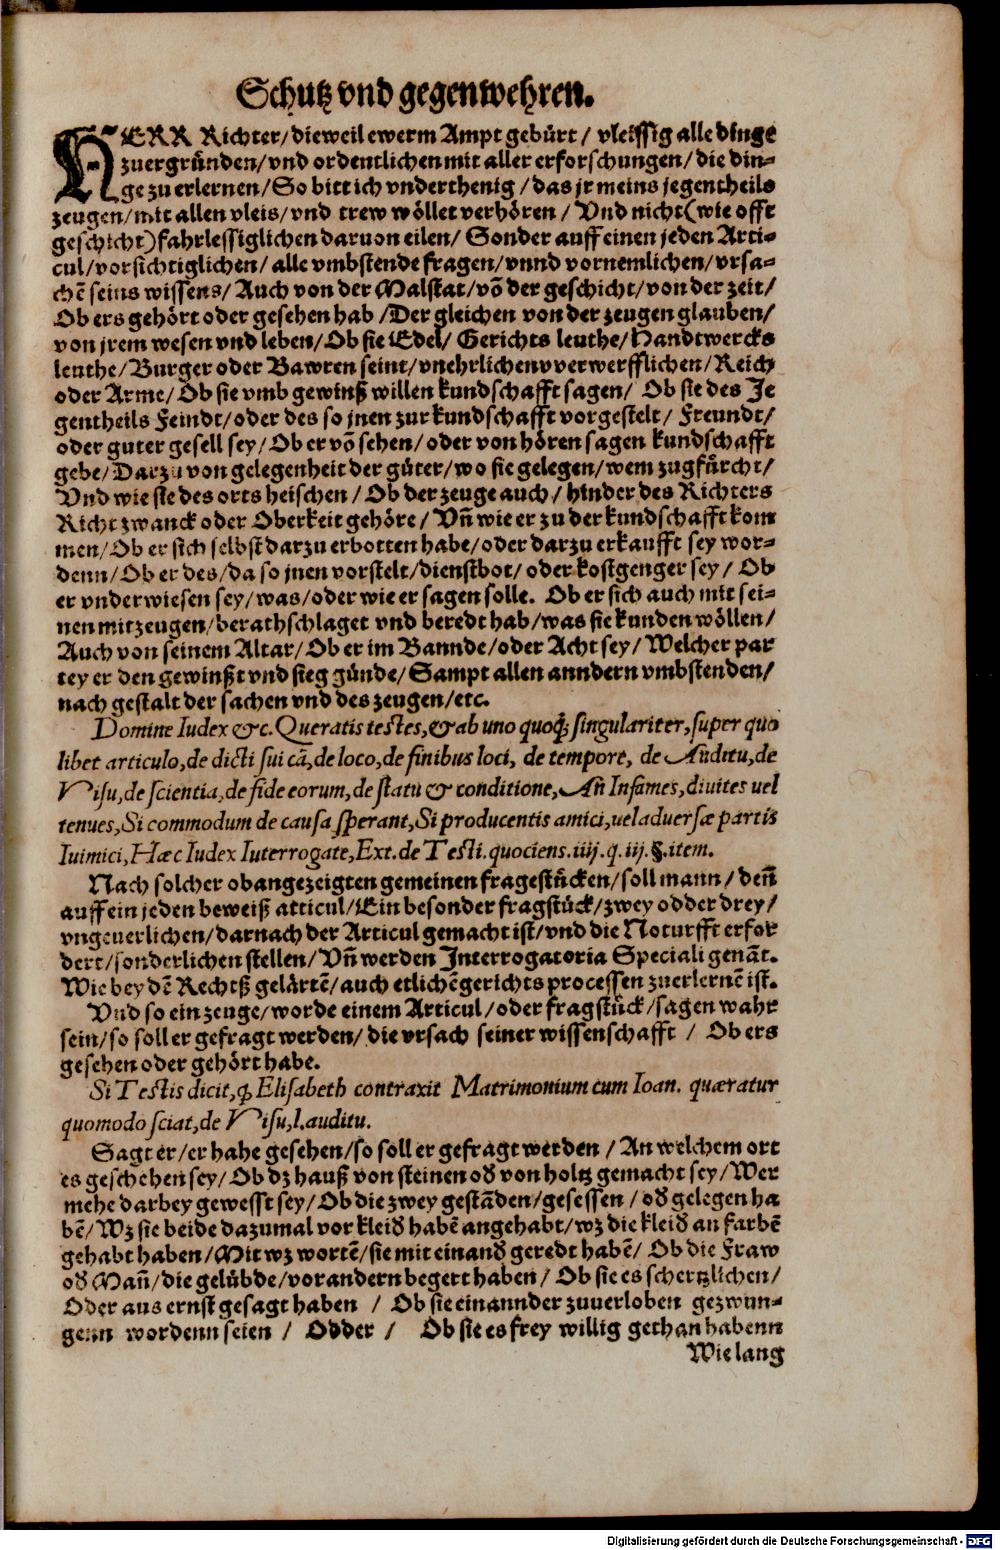 Schutz vnd gegenwehren.
HERR Richter/dieweil ewerm Ampt gebürt/ vleissig alle dinge
zuergründen/vnd ordentlichen mit aller erforschungen/die din-
ge zu erlernen/So bitt ich vnderthenig/das jr meins jegentheils
zeugen/mit allen vleis/vnd trew wöllet verhören/ Vnd nicht(wie offt
geschicht)fahrlessiglichen daruon eilen/ Sonder auff einen jeden Arti-
cul/vorsichtiglichen/alle vmbstende fragen/vnnd vornemlichen/vrsa-
chē seins wissens/Auch von der Malstat/vō der geschicht/von der zeit/
Ob ers gehört oder gesehen hab/Der gleichen von der zeugen glauben/
von jrem wesen vnd leben/Ob sie Edel/ Gerichts leuthe/Handtwercks
leuthe/Burger oder Bawren seint/vnehrlichen vverwerfflichen/Reich
oder Arme/Ob sie vmb gewinß willen kundschafft sagen/ Ob sie des Je
gentheils Feindt/oder des so jnen zur kundschafft vorgestelt/ Freundt/
oder guter gesell sey/Ob er vō sehen/oder von hören sagen kundschafft
gebe/Darzu von gelegenheit der güter/wo sie gelegen/wem zugfürcht/
Vnd wie sie des orts heischen/Ob der zeuge auch/hinder des Richters
Richt zwanck oder Oberkeit gehöre/Vñ wie er zu der kundschafft kom
men/Ob er sich selbst darzu erbotten habe/oder darzu erkaufft sey wor-
denn/Ob er des/da so jnen vorstelt/dienstbot/oder kostgenger sey/ Ob
er vnderwiesen sey/was/oder wie er sagen solle. Ob er sich auch mit sei-
nen mitzeugen/berathschlaget vnd beredt hab/was sie kunden wöllen/
Auch von seinem Altar/Ob er im Bannde/oder Acht sey/Welcher par
tey er den gewinßt vnd sieg günde/Sampt allen anndern vmbstenden/
nach gestalt der sachen vnd des zeugen/etc.
Domine Iudex &c. Queratis testes,& ab uno quoq; singulariter,super quo
libet articulo,de dicti sui cā,de loco,de finibus loci, de tempore, de Auditu,de
Visu,de scientia,de fide eorum,de statu & conditione,Añ Infames,diuites uel
tenues,Si commodum de causa sperant,Si producentis amici,uel aduersæ partis
Iuimici,Hæc Iudex Iuterrogate,Ext.de Testi.quociens.iiij.q.iij.§.item.
Nach solcher obangezeigten gemeinen fragestücken/soll mann/deñ
auff ein jeden beweiß atticul/Ein besonder fragstück/zwey odder drey/
vngeuerlichen/darnach der Articul gemacht ist/vnd die Noturfft erfor
dert/sonderlichen stellen/Vñ werden Interrogatoria Speciali genāt.
Wie bey dē Rechtß gelärtē/auch etlichē gerichts processen zuerlernē ist.
Vnd so ein zeuge/worde einem Articul/oder fragstück/sagen wahr
sein/so soll er gefragt werden/die vrsach seiner wissenschafft / Ob ers
gesehen oder gehört habe.
Si Testis dicit,q; Elisabeth contraxit Matrimonium cum Ioan. quæratur
quomodo sciat,de Visu,l.auditu.
Sagt er/er hahe gesehen/so soll er gefragt werden/An welchem ort
es geschehen sey/Ob dz hauß von steinen od von holtz gemacht sey/Wer
mehe darbey gewesst sey/Ob die zwey gestādē/gesessen/od gelegen ha
bē/Wz sie beide dazumal vor kleid habē angehabt/wz die kleid an farbē
gehabt haben/Mit wz wortē/sie mit einand geredt habē/Ob die Fraw
od Mañ/die gelübde/vor andern begert haben/Ob sie es schertzlichen/
Oder aus ernst gesagt haben / Ob sie einannder zuuerloben gezwun-
genn wordenn seien / Odder / Ob sie es frey willig gethan habenn
Wie lang
Digitalisierung gefördert durch die Deutsche Forschungsgemeinschaft - DFG